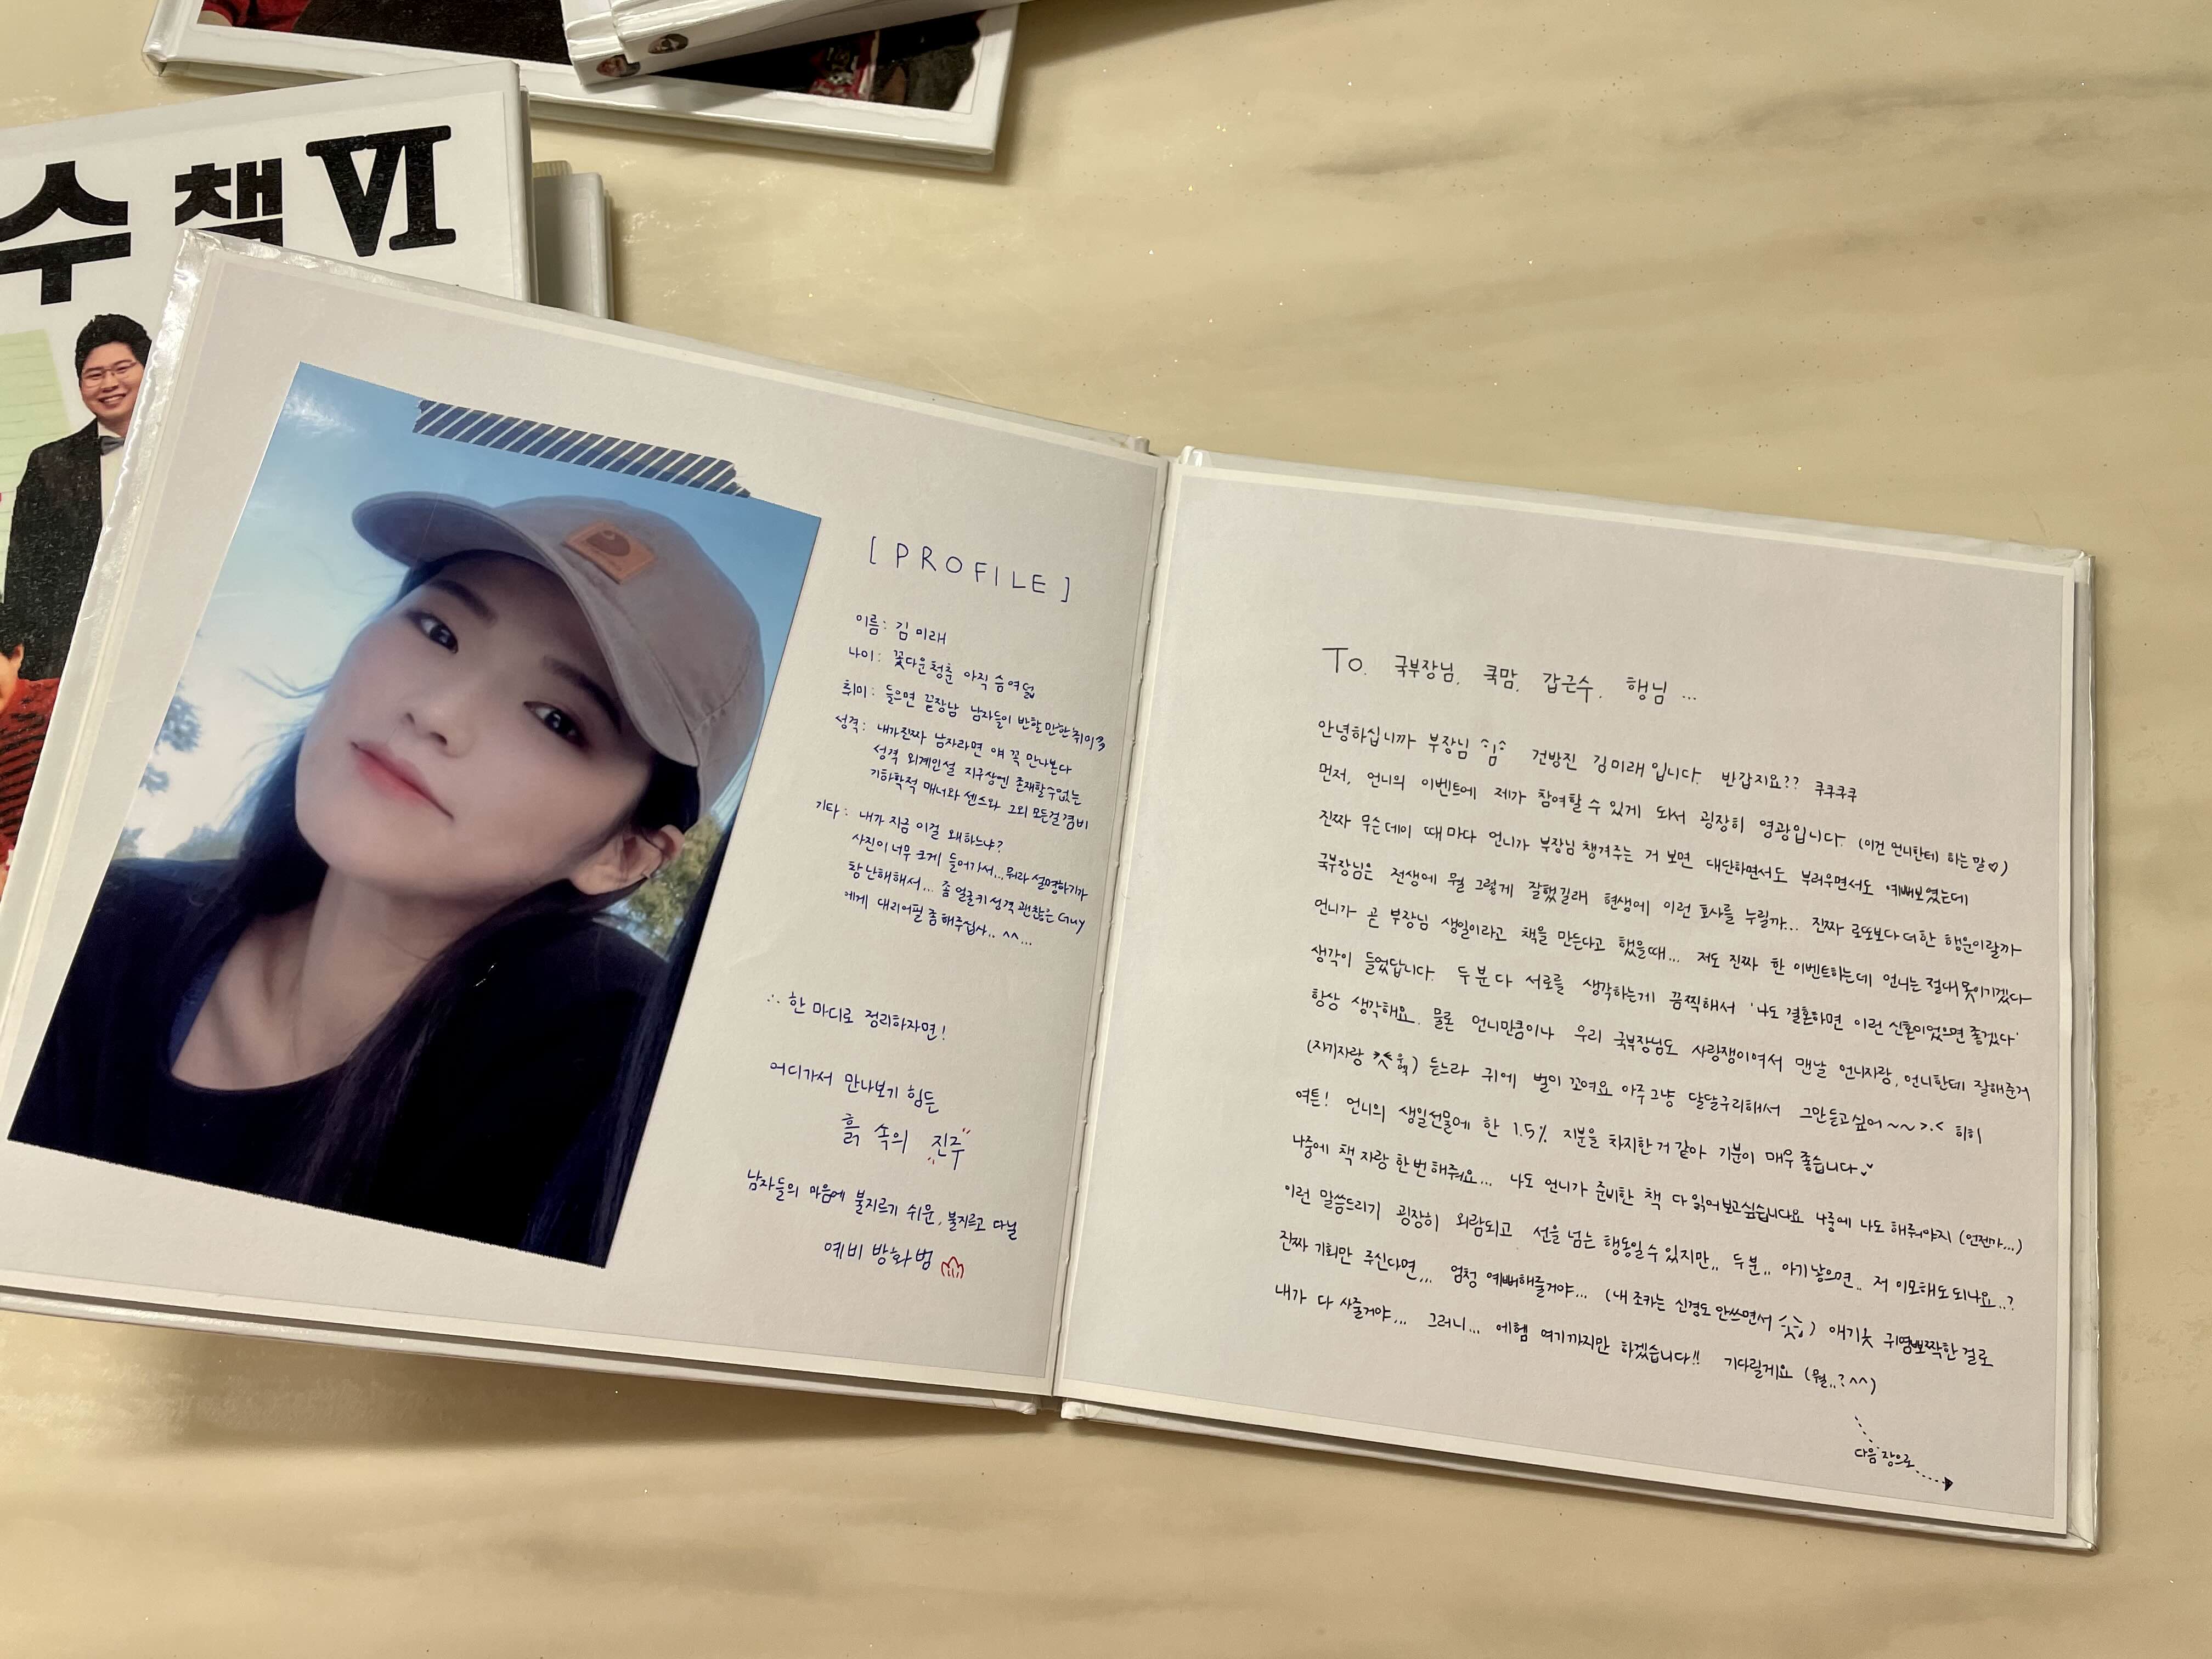 수 책 Ⅵ
[ PROFILE ]
이름: 김미래
나이: 꽃다운청춘 아직 슴여덟
취미: 들으면 끝장남 남자들이 반할만한취미
성격: 내가진짜 남자라면 얘 꼭 만나본다
성격 외계인설 지구상엔 존재할수없는
기하학적 매너와 센스와 그외 모든걸 겸비
기타: 내가 지금 이걸 왜하느냐?
사진이 너무 크게 들어가서...뭐라 설명하기가
참 난해해서... 좀 얼굴키성격 괜찮은 Guy
에게 대리어필 좀 해주십사.. ^^...
∴ 한 마디로 정리하자면!
어디가서 만나보기 힘든
흙 속의 진주
남자들의 마음에 불지르기 쉬운, 불지르고 다닐
예비 방화범
To. 국부장님, 쿡맘, 갑근수, 행님 ...
안녕하십니까 부장님 건방진 김미래입니다. 반갑지요?? 쿠쿠쿠쿠
먼저, 언니의 이벤트에 제가 참여할 수 있게 돠서 굉장히 영광입니다. (이건 언니한테 하는 말♡)
진짜 무슨데이 때마다 언니가 부장님 챙겨주는 거 보면 대단하면서도 부러우면서도 예뻐보였는데
국부장님은 전생에 뭘 그렇게 잘했길래 현생에 이런 호사를 누릴까... 진짜 로또보다 더한 행운이랄까
언니가 곧 부장님 생일이라고 책을 만든다고 했을때... 저도 진짜 한 이벤트하는데 언니는 절대 못이기겠다
생각이 들었답니다. 두 분 다 서로를 생각하는게 끔찍해서 '나도 결혼하면 이런 신혼이었으면 좋겠다'
항상 생각해요. 물론 언니만큼이나 우리 국부장님도 사랑쟁이여서 맨날 언니자랑, 언니한테 잘해준거
(자기자랑) 듣느라 귀에 벌이 꼬여요 아주그냥 달달구리해서 그만듣고싶어~~ >.< 히히
여튼! 언니의 생일선물에 한 1.5% 지분을 차지한거 같아 기분이 매우 좋습니다
나중에 책 자랑 한번 해줘요... 나도 언니가 준비한 책 다 읽어보고싶습니다요 나중에 나도 해줘야지 (언젠가...)
이런 말씀드리기 굉장히 외람되고 선을 넘는 행동일수 있지만.. 두분.. 아기낳으면.. 저 이모해도 되나요..?
진짜 기회만 주신다면... 엄청 예뻐해줄거야... (내 조카는 신경도 안쓰면서) 애기옷 귀염뽀짝한 걸로
내가 다 사줄거야... 그러니... 에헴 여기까지만 하겠습니다!! 기다릴게요 (뭘..?^^)
다음 장으로